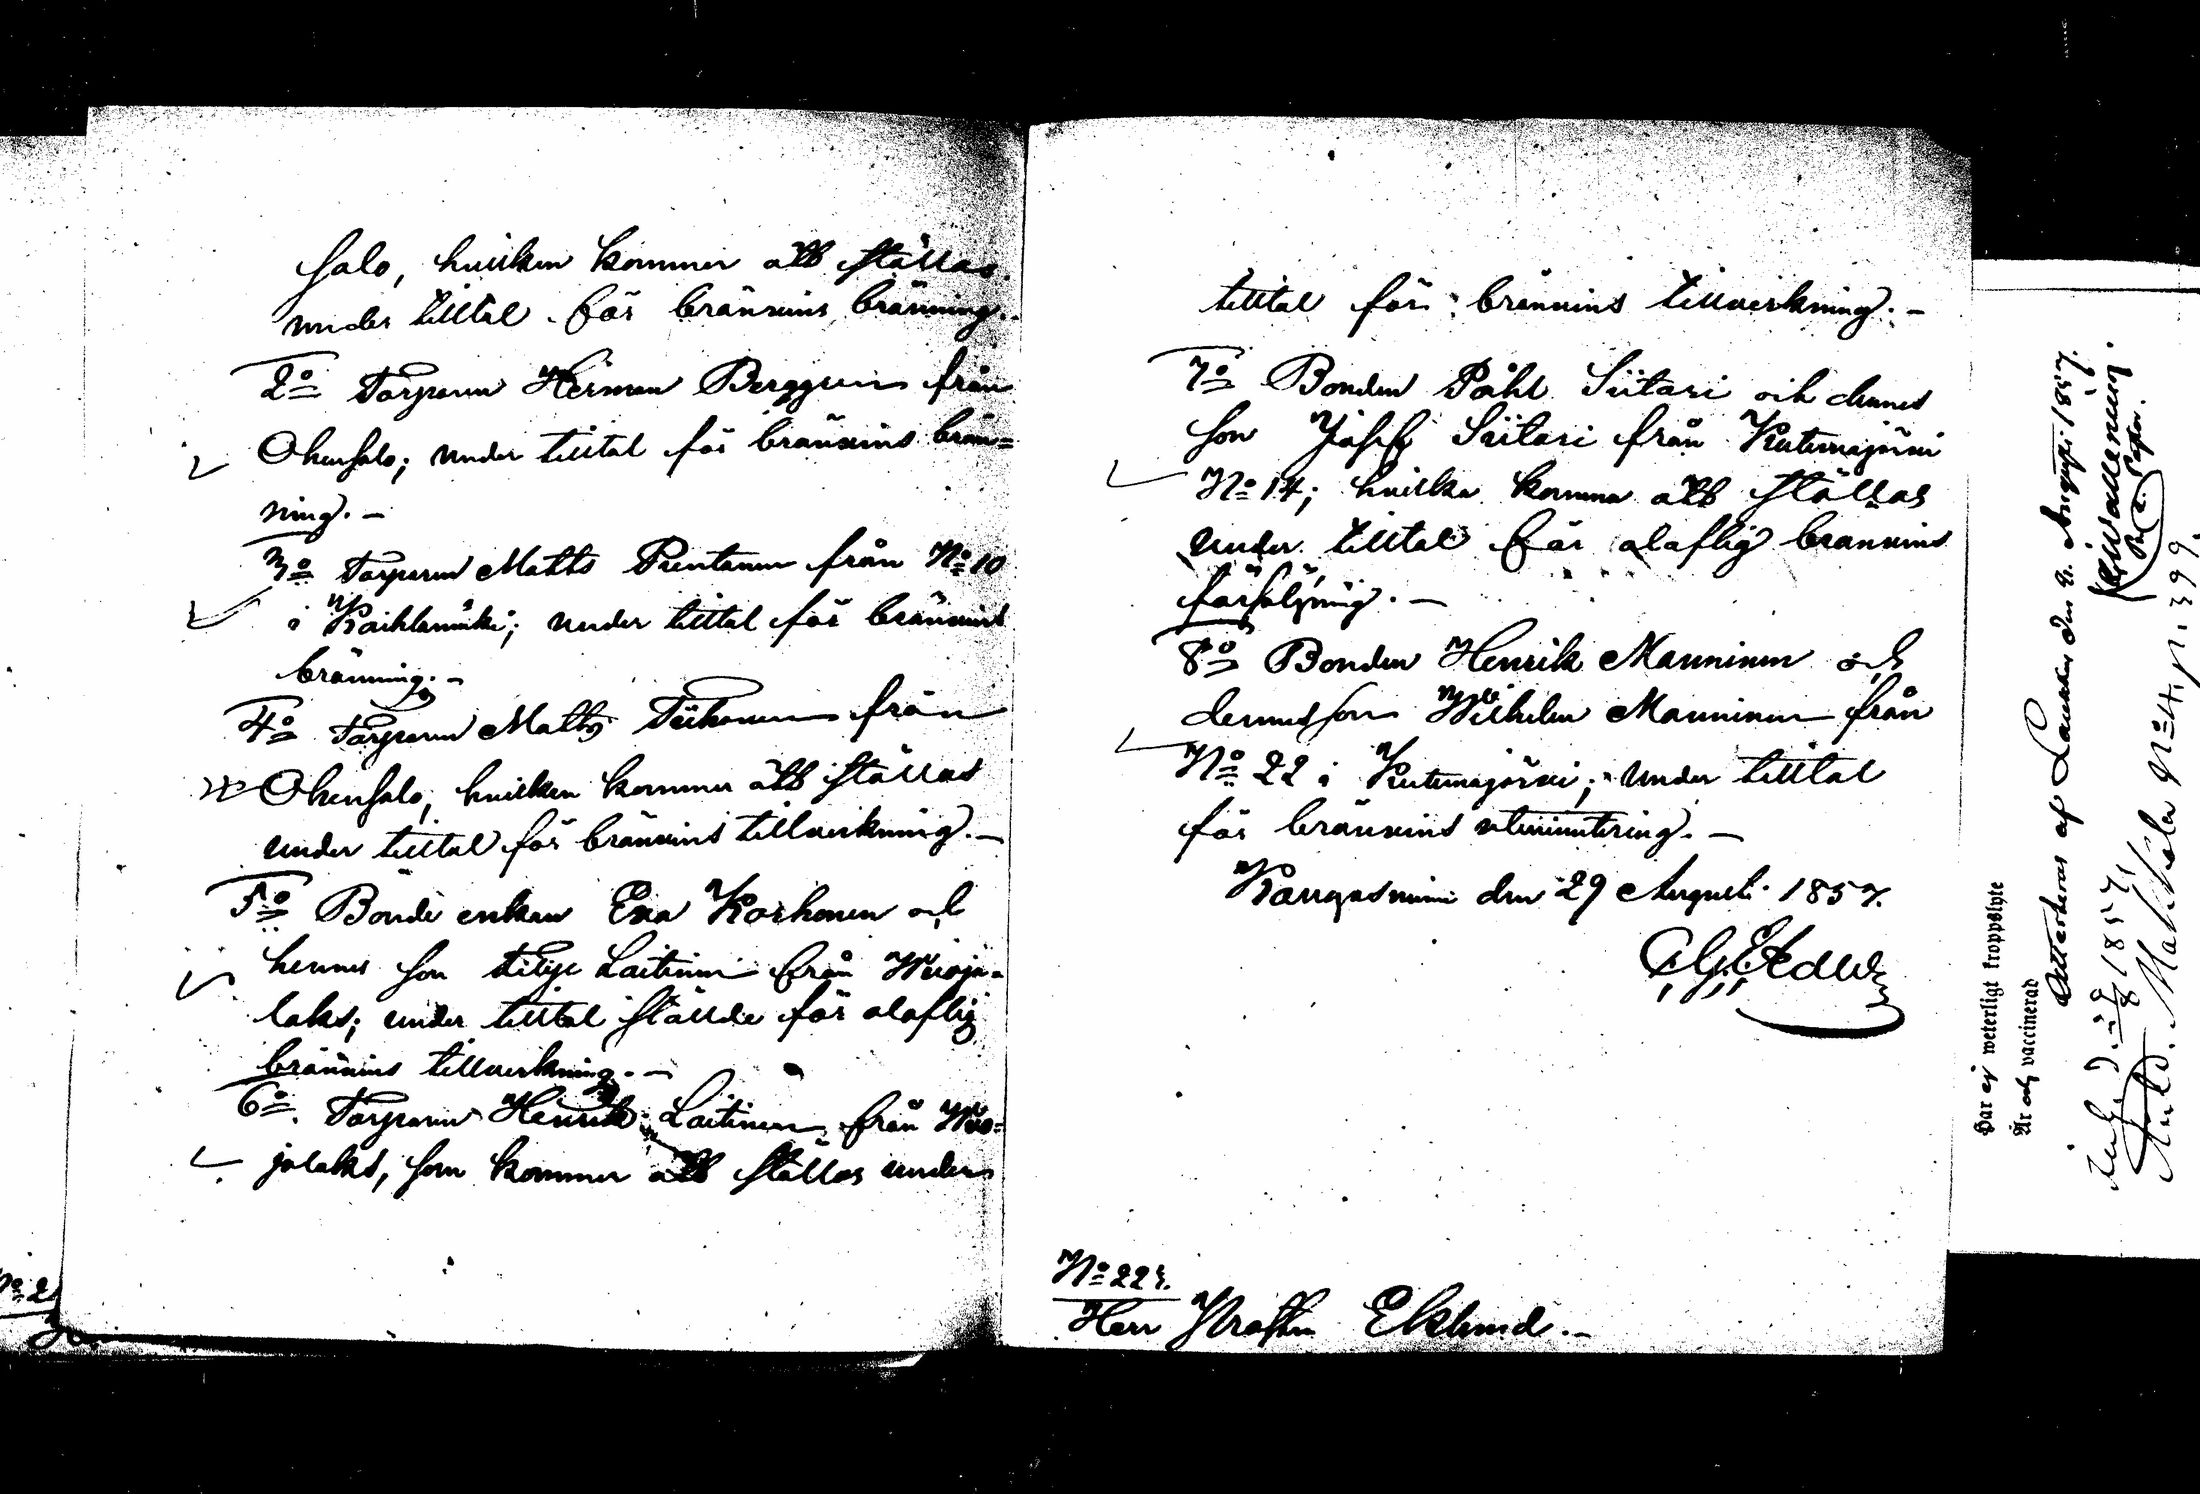 salo, hvilken kommer att ställas
under tilltal för bränvins bränning.
2o Torparen Herman Berggren från
Ohensalo; under tilltal för bränvins brän=
ning. –
3o Torparen Matts Pentanen från No 10
i Kaihlamäki; under tilltal för bränvins
bränning. –
4o Torparen Matts Tiihonen från
Ohensalo, hvilken kommer att ställas
under tilltal för bränvins tillverkning. –
5o Bonde enkan Eva Korhonen och
hennes son Laitinen från Wuoja=
laks; under tilltal ställde för olaflig
bränvins tillverkning. –
6o. Torparen Henrik Laitinen från Wuo=
jalaks, som kommer att ställas under
No 2
tilltal för brännvins tillverkning. –
7o Bonden Påhl Siitari och dennes
son Josef Siitari från Kutemajärvi
No 14; hvilka komma att ställas
under tilltal för olaflig brännvins
försäljning. –
8o Bonden Henrik Manninen och
dennes son Wilhelm Manninen från
No 22 i Kutemajärvi; under tilltal
för bränvins utminutering. –
Kangasniemi den 29 Augusti 1857.
No 223.
Herr Eklund. –
Har ej weterligt kroppslyte
Är och vaccinerad
Attesteras af den 2. Augusti 1857.
Pastor.
1857
No 4 p. 399.